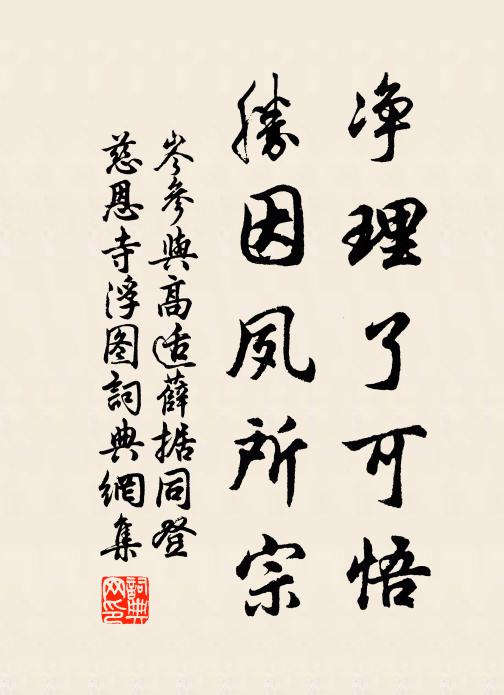 净理了可悟
勝因夙所宗
岑參與高适薛據同登
慈恩寺浮图詞典網集